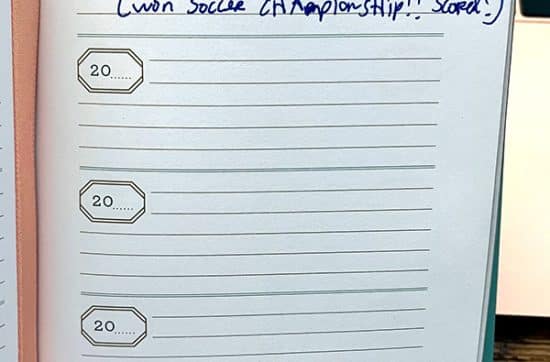 (won Soccer CHAmpionship!! Scored!)
20......
20......
20......